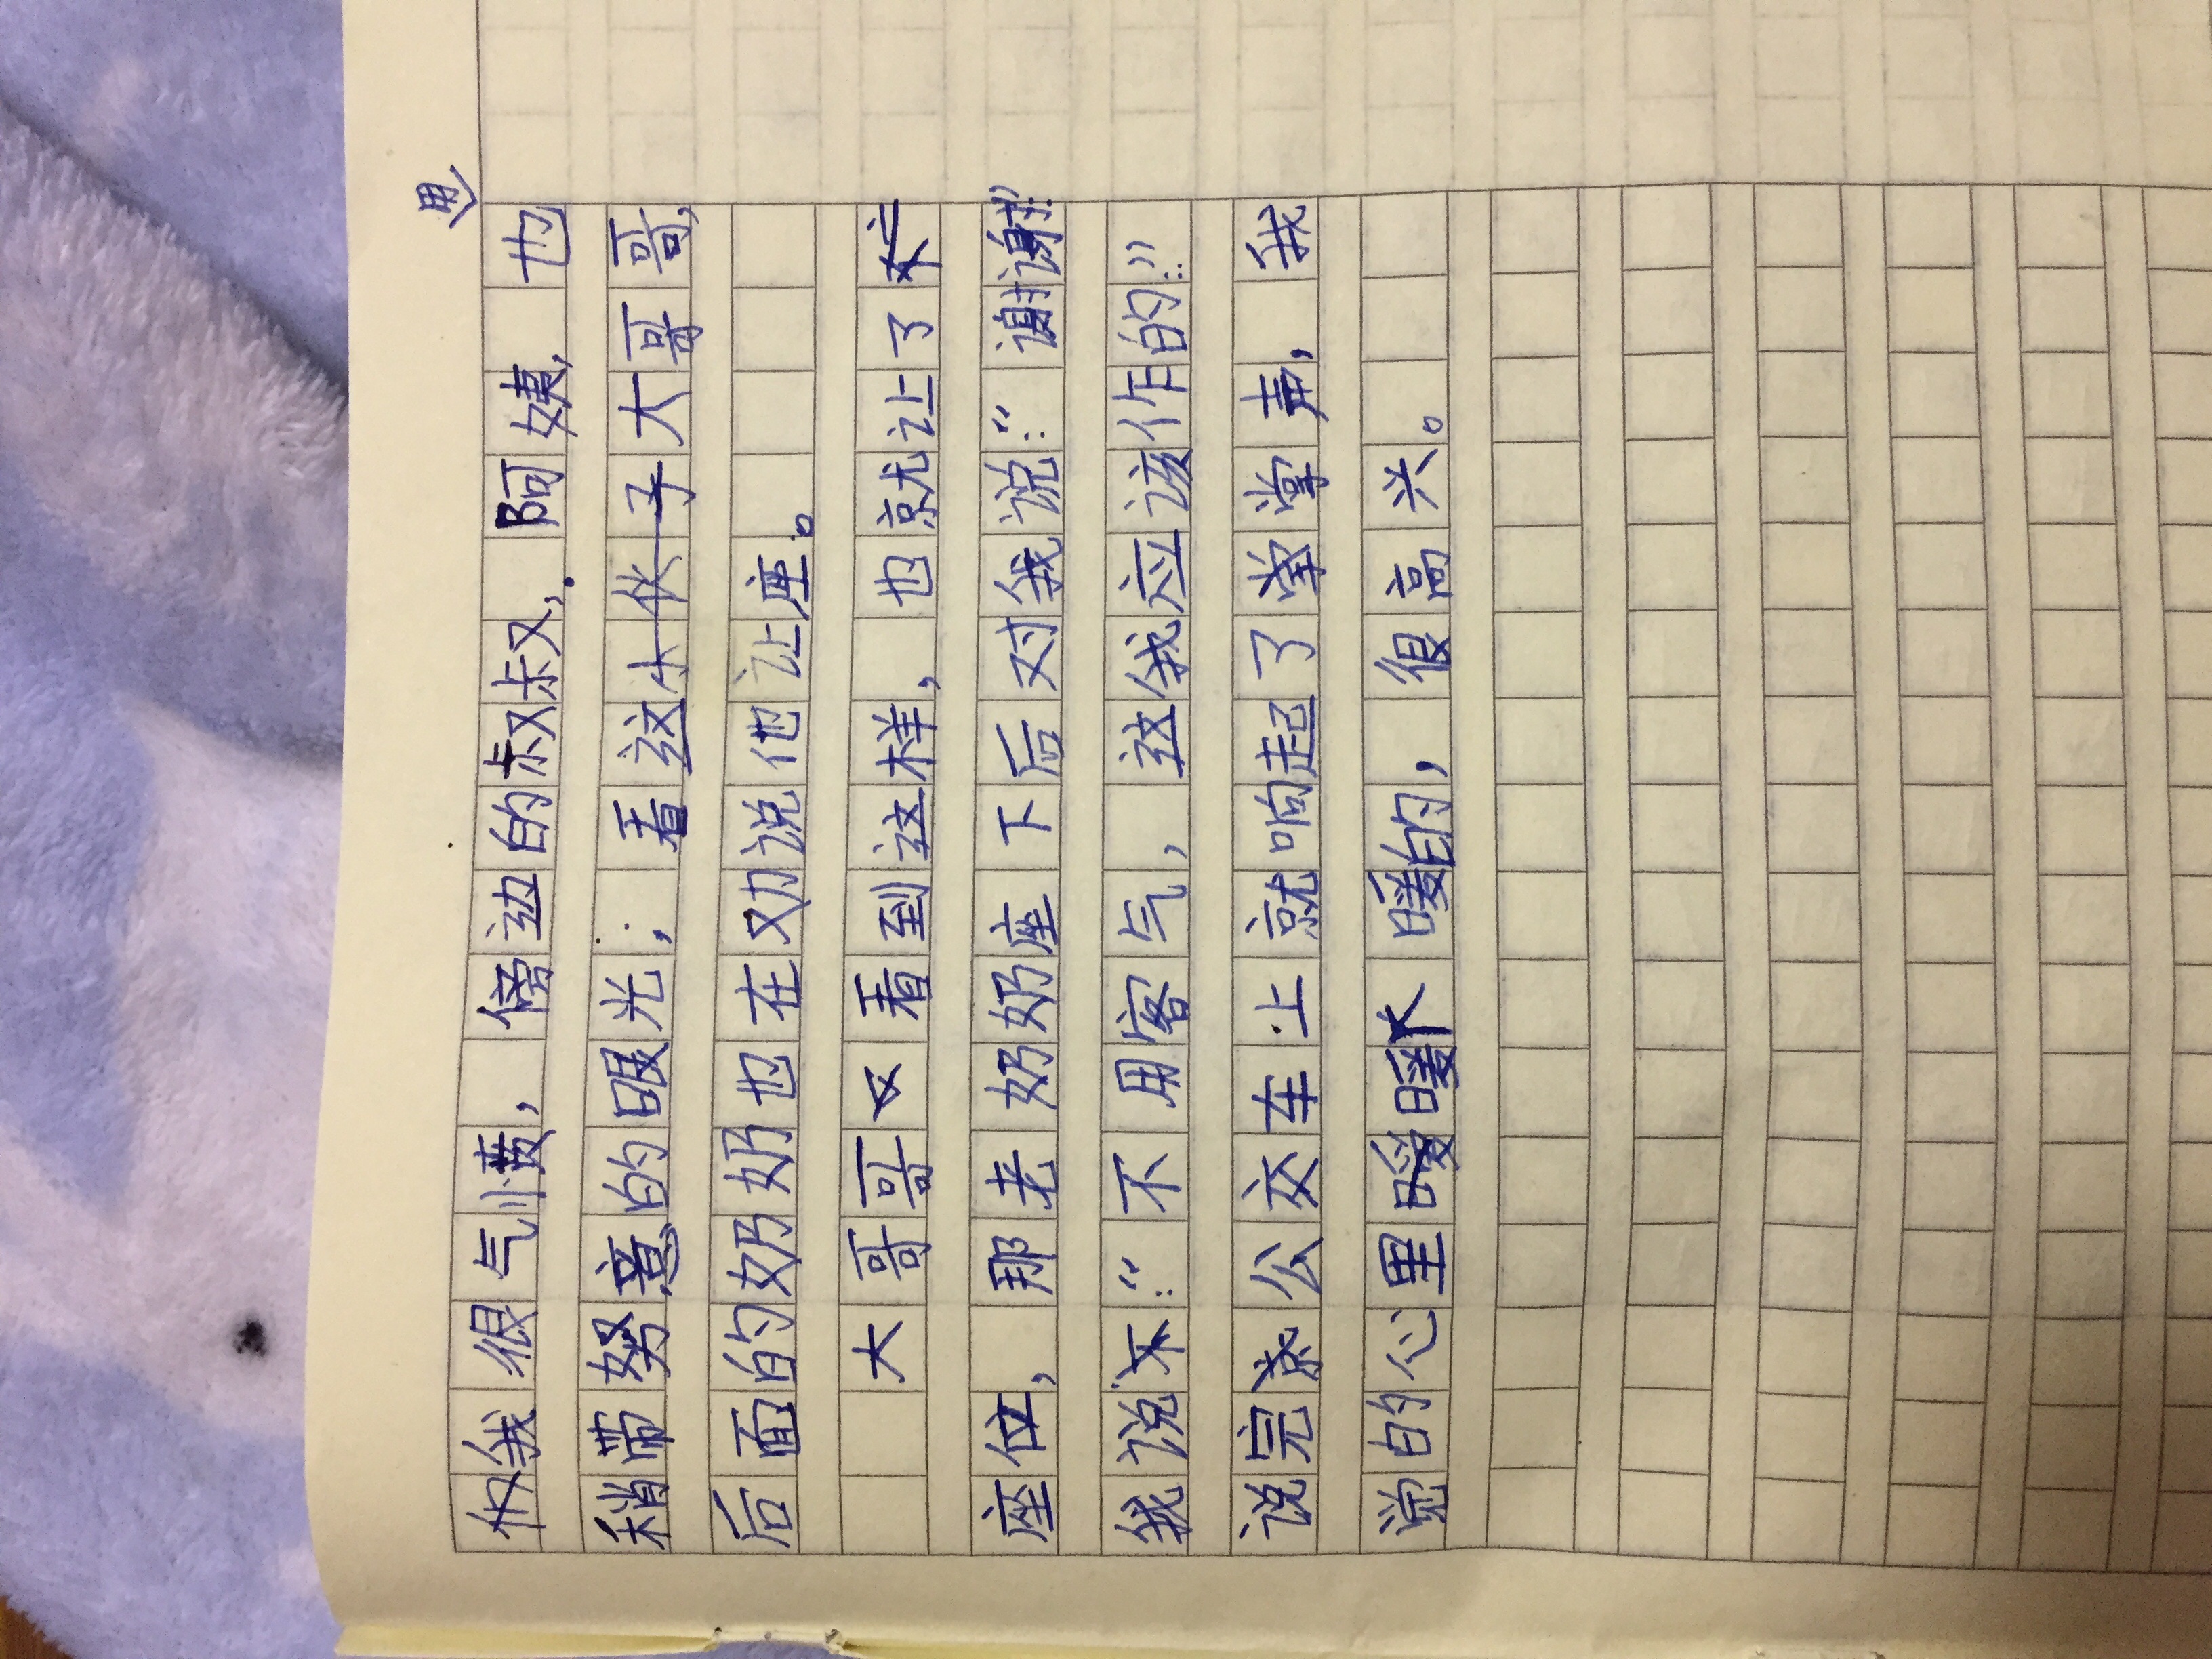 用
我很气愤，傍边的叔叔，阿姨，也
稍带努意的眼光，看这小伙子大哥哥，
后面的奶奶也在劝说他让座。
大哥哥又看到这样，也就让了
座位，那老奶奶座下后对我说：“谢谢！”
我说：“不用客气，这我应该作的！”
说完公交车上就响起了掌声，我
觉的心里暖暖的，很高兴。